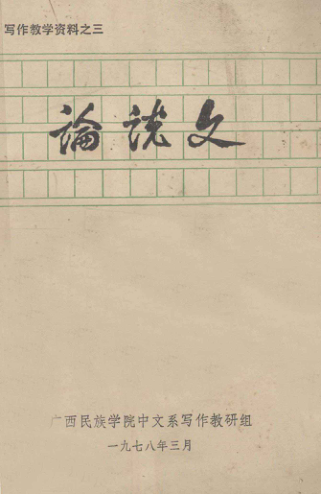 写作教学资料之三
論説文
广西民族学院中文系写作教研组
一九七八年三月